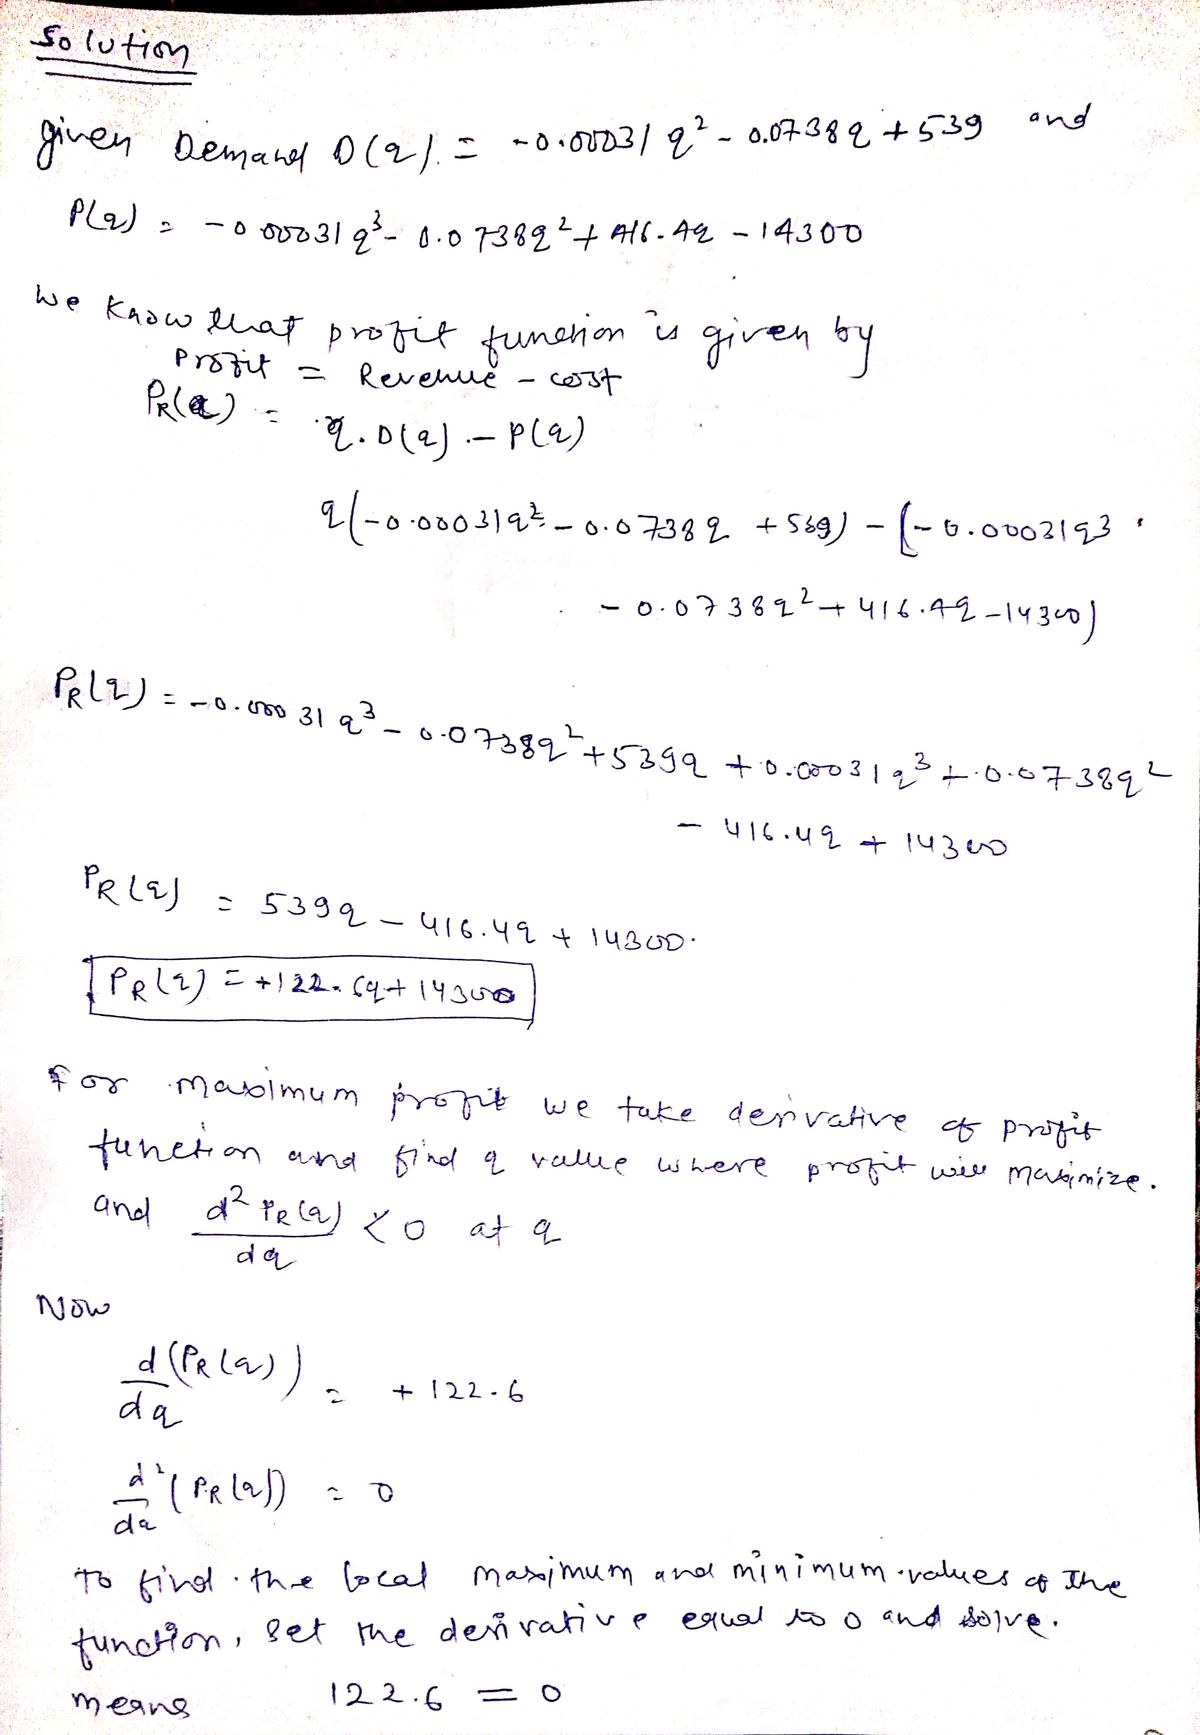 Solution
given Demand D(q). = -0.00031 q² - 0.0738q + 539 and
P(q) = -0.00031 q³ - 0.0738q² + 416.4q - 14300
We know that profit function is given by
Profit = Revenue - cost
PR(q) = q. D(q) - P(q)
q(-0.00031q² - 0.0738q + 539) - (-0.00031q3
- 0.0738q² + 416.4q - 14300)
PR(q) = -0.00031 q³ - 0.0738q² + 539q + 0.00031q³ + 0.0738q²
- 416.4q + 14300
PR(q) = 539q - 416.4q + 14300.
PR(q) = +122.6q + 14300
For maximum profit we take derivative of profit
function and find q value where profit will maximize.
and d² PR(q)/dq < 0 at q
Now
d(PR(q))/dq = + 122.6
d²(PR(q))/dq = 0
To find the local maximum and minimum values of the
function, set the derivative equal to 0 and solve.
means 122.6 = 0